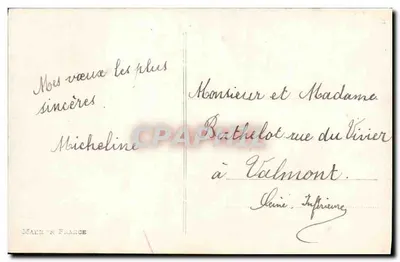 Mes vœux les plus
sincères.
Micheline
Monsieur et Madame
Barthelot rue du Vivier
à Valmont.
Seine-Inférieure
MADE IN FRANCE